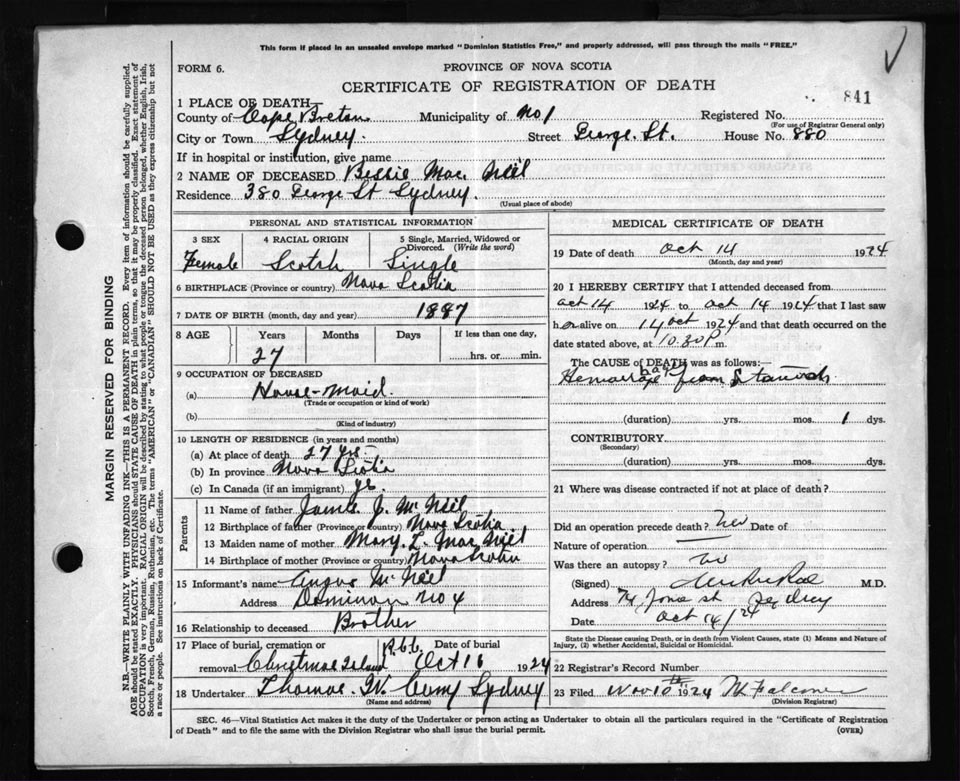 This form if placed in an unsealed envelope marked "Dominion Statistics Free," and properly addressed, will pass through the mails "FREE."
FORM 6.
PROVINCE OF NOVA SCOTIA
CERTIFICATE OF REGISTRATION OF DEATH
841
1 PLACE OF DEATH—
County of Cape Breton Municipality of No 1 Registered No.
(For use of Registrar General only)
City or Town Sydney. Street George. St. House No. 880
If in hospital or institution, give name
2 NAME OF DECEASED Bessie Mac. Neil
Residence 380 George St Sydney.
(Usual place of abode)
PERSONAL AND STATISTICAL INFORMATION
3 SEX 4 RACIAL ORIGIN 5 Single, Married, Widowed or Divorced. (Write the word)
Female Scotch Single
6 BIRTHPLACE (Province or country) Nova Scotia
7 DATE OF BIRTH (month, day and year) 1887
8 AGE Years Months Days If less than one day,
27 hrs. or min.
9 OCCUPATION OF DECEASED
(a) House-maid.
(Trade or occupation or kind of work)
(b)
(Kind of industry)
10 LENGTH OF RESIDENCE (in years and months)
(a) At place of death 27 yrs.
(b) In province Nova Scotia
(c) In Canada (if an immigrant)
Parents
11 Name of father James J. McNeil
12 Birthplace of father (Province or country) Nova Scotia.
13 Maiden name of mother Mary. L. Mac Neil
14 Birthplace of mother (Province or country) Nova Scotia
15 Informant's name Angus McNeil
Address Dominion No 4
16 Relationship to deceased Brother
17 Place of burial, cremation or removal Christmas Island Date of burial Oct 16 1924
18 Undertaker Thomas. W. Curry Sydney
(Name and address)
MEDICAL CERTIFICATE OF DEATH
19 Date of death Oct 14 1924
(Month, day and year)
20 I HEREBY CERTIFY that I attended deceased from
Oct 14 1924 to Oct 14 1924 that I last saw
her alive on 14 Oct 1924 and that death occurred on
date stated above, at 10.30 P. m.
The CAUSE of DEATH was as follows:—
Hemorrhage from Stomach
(duration) yrs. mos. 1 dys.
CONTRIBUTORY
(Secondary)
(duration) yrs. mos. dys.
21 Where was disease contracted if not at place of death?
Did an operation precede death? No Date of
Nature of operation
Was there an autopsy? No
(Signed) M.D.
Address Sydney
Date Oct 14/24
State the Disease causing Death, or in death from Violent Causes, state (1) Means and Nature of Injury, (2) whether Accidental, Suicidal or Homicidal.
22 Registrar's Record Number
23 Filed Nov 10th 1924 M Falconer
(Division Registrar)
SEC. 46—Vital Statistics Act makes it the duty of the Undertaker or person acting as Undertaker to obtain all the particulars required in the "Certificate of Registration
of Death" and to file the same with the Division Registrar who shall issue the burial permit. (OVER)
MARGIN RESERVED FOR BINDING
N.B.—WRITE PLAINLY WITH UNFADING INK—THIS IS A PERMANENT RECORD. Every item of information should be carefully supplied.
AGE should be stated EXACTLY. PHYSICIANS should STATE CAUSE OF DEATH in plain terms, so that it may be properly classified. Exact statement of
OCCUPATION is very important. RACIAL ORIGIN will be described by stating to what people or tongue the deceased person belonged, whether English, Irish,
Scotch, French, German, Russian, Ruthenian, etc. The terms "AMERICAN" or "CANADIAN" SHOULD NOT BE USED as they express citizenship but not
a race or people. See instructions on back of Certificate.